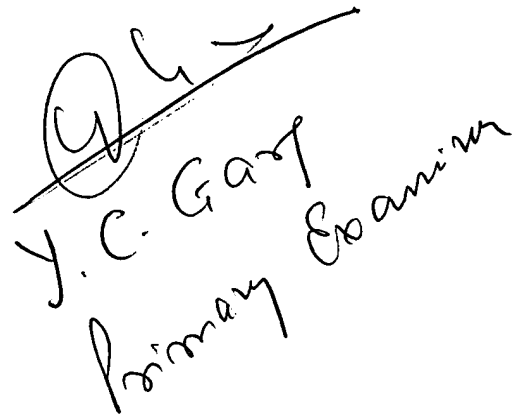 Y. C. Garg
Primary Examiner